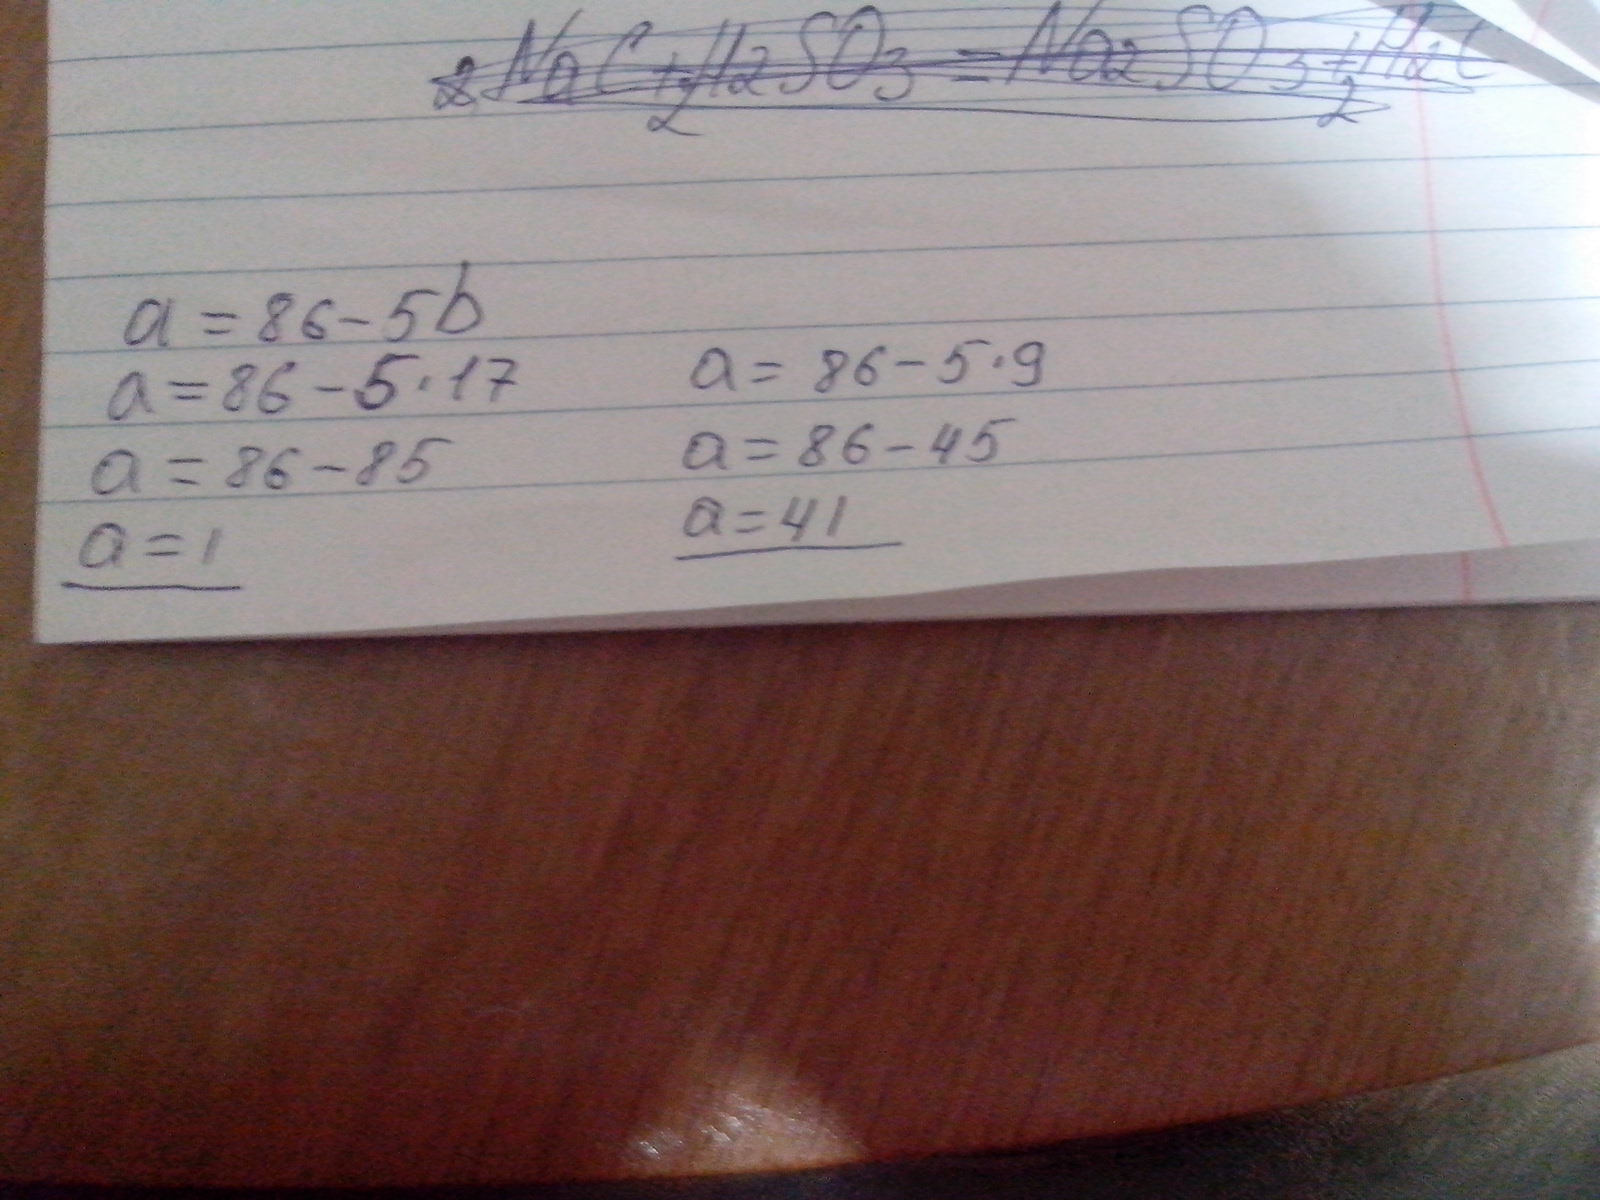 2NaC+H2SO3=Na2SO3+H2C
2 2
a=86-5b
a=86-5·17
a=86-85
a=1
a=86-5·9
a=86-45
a=41